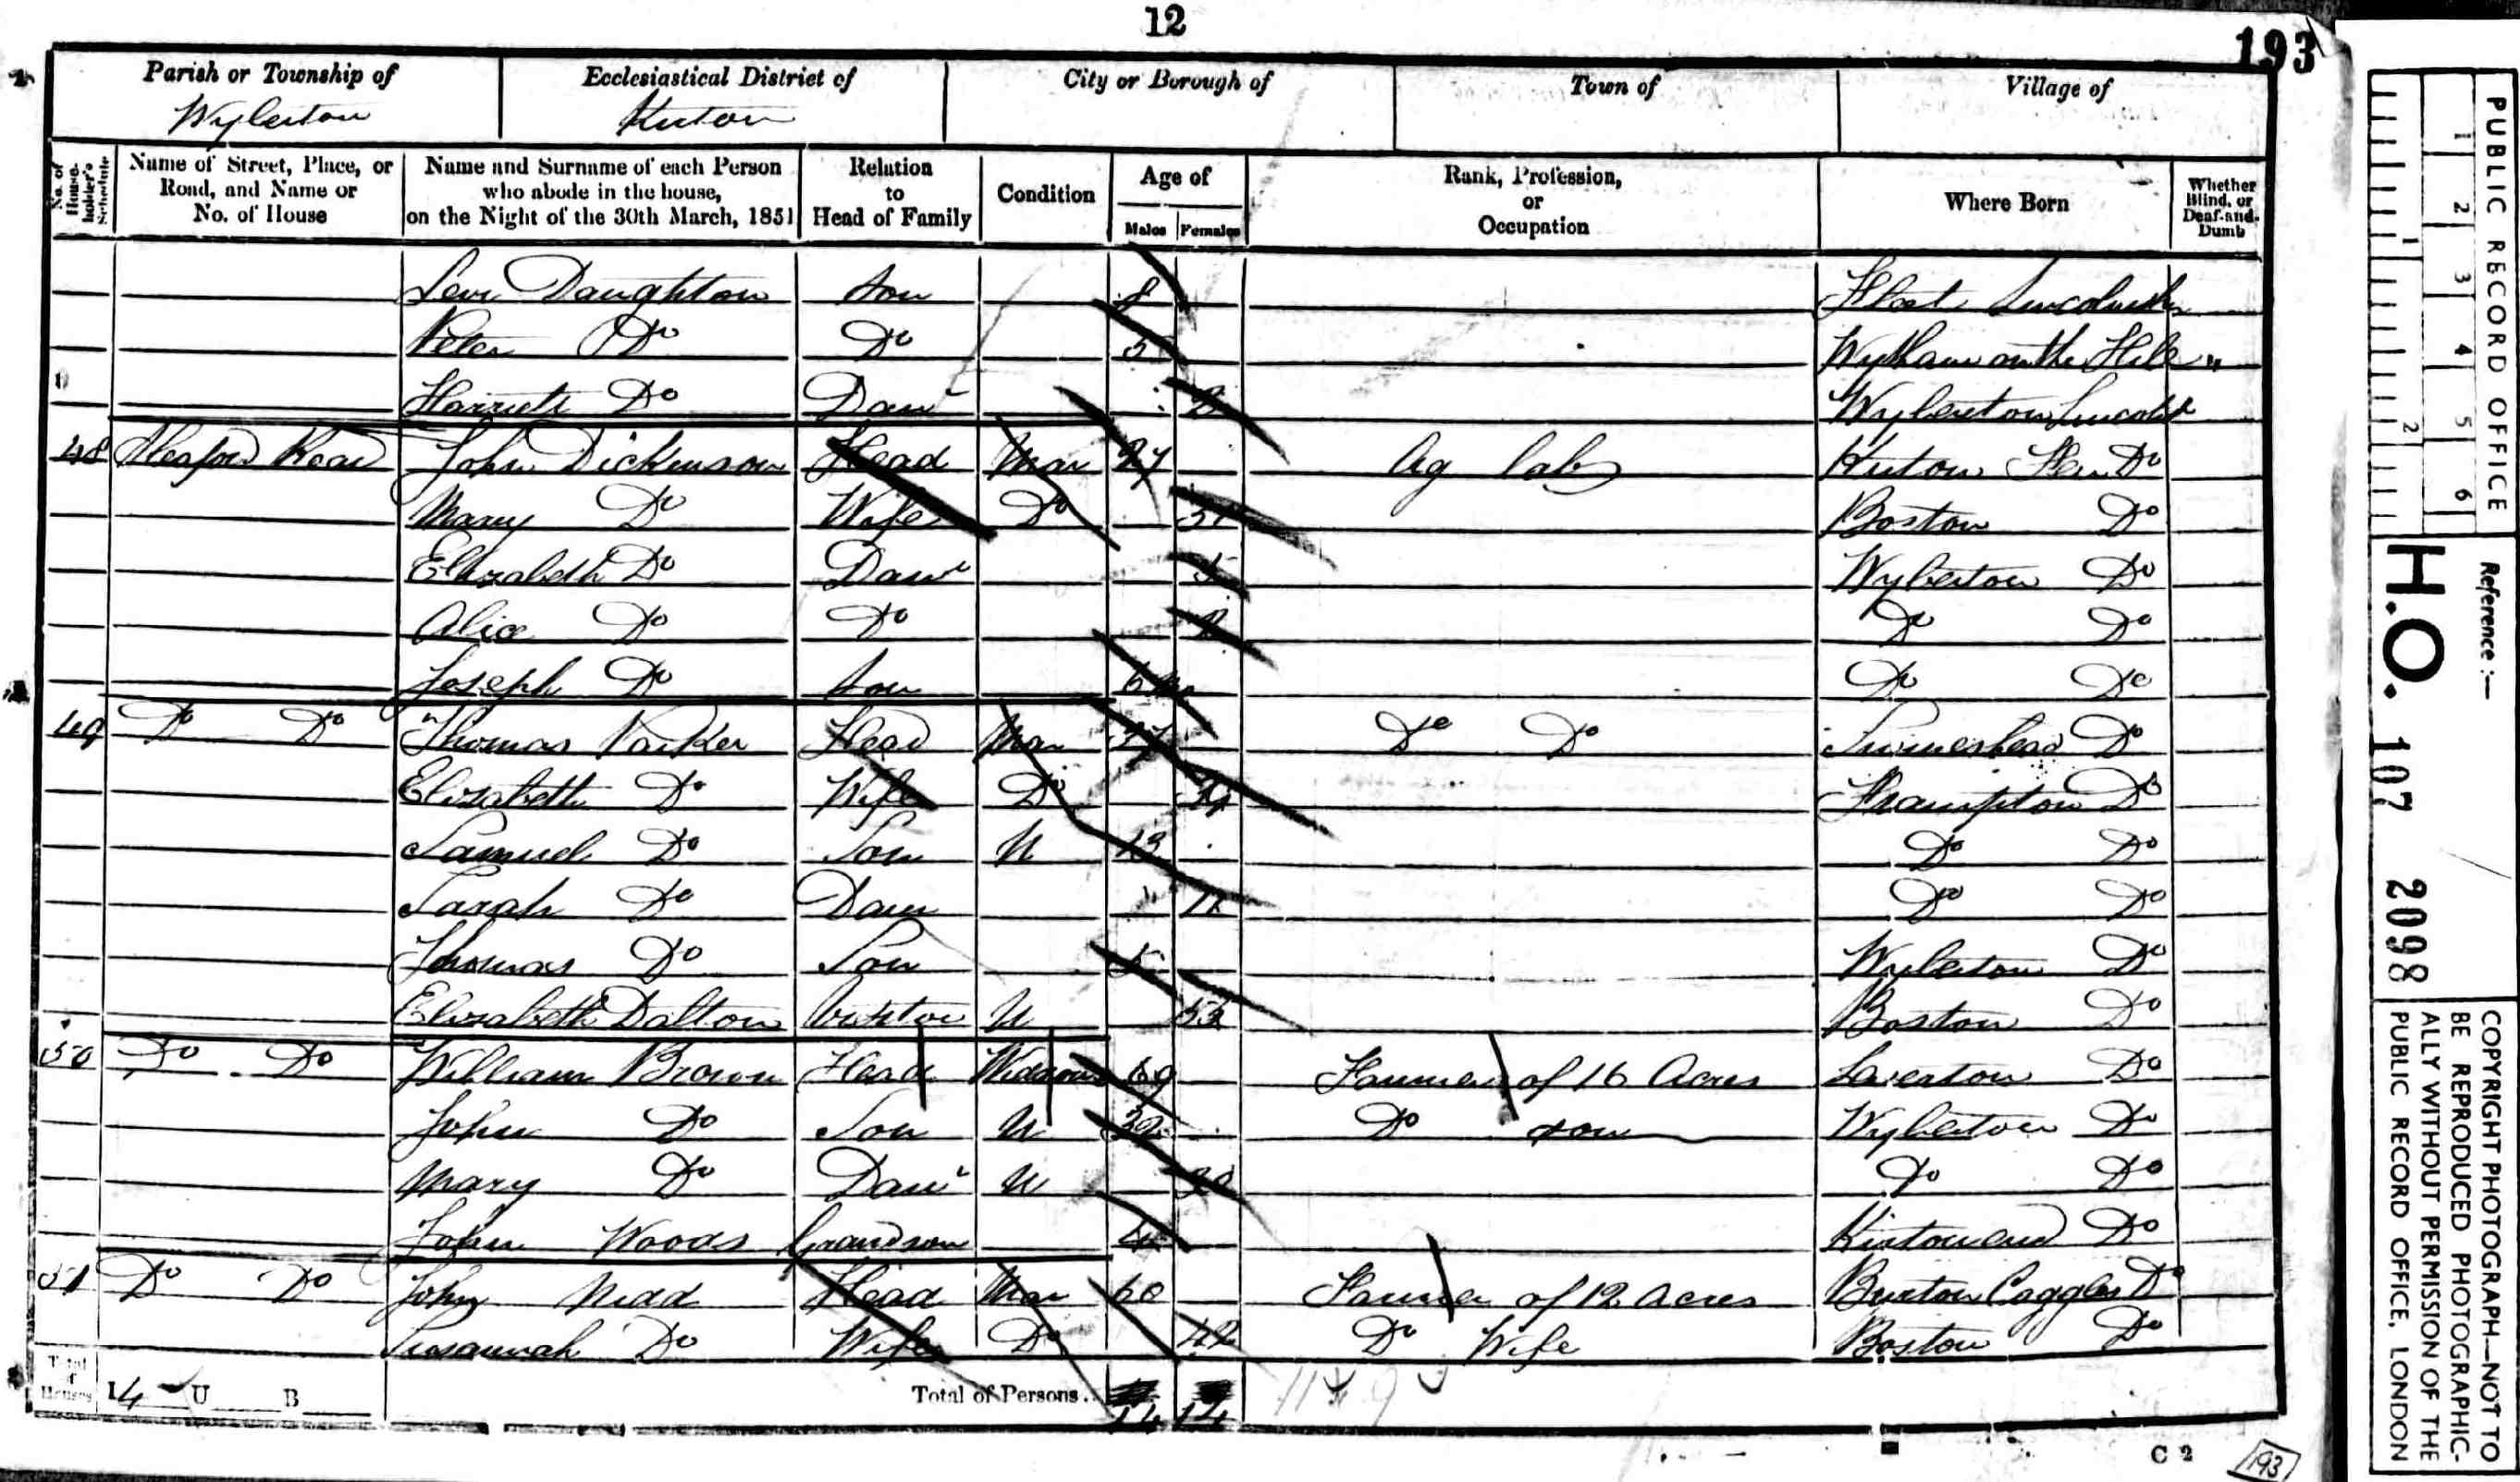 12
193
Parish or Township of Ecclesiastical District of City or Borough of Town of Village of
Wyberton Kirton
No. of House-holder's Schedule Name of Street, Place, or Road, and Name or No. of House Name and Surname of each Person who abode in the house, on the Night of the 30th March, 1851 Relation to Head of Family Condition Age of Males Females Rank, Profession, or Occupation Where Born Whether Blind, or Deaf-and-Dumb
Levi Daughton Son 8 Fleet Lincolnsh
Peter Do Do 5 Wytham on the Hill "
Harriett Do Daur Wyberton Lincolns
48 Sleaford Road John Dickenson Head Mar Ag lab Kirton Fen Do
Mary Do Wife Do Boston Do
Elizabeth Do Daur 5 Wyberton Do
Alice Do Do Do Do
Joseph Do Son Do Do
49 Do Do Thomas Parker Head Mar Do Do Swineshead Do
Elizabeth Do Wife Do Frampton Do
Samuel Do Son U 13 Do Do
Sarah Do Daur Do Do
Thomas Do Son 5 Wyberton Do
Elizabeth Dalton Visitor U Boston Do
50 Do Do William Brown Head Widower 69 Farmer of 16 Acres Leverton Do
John Do Son U 32 Do son Wyberton Do
Mary Do Daur U Do Do
John Woods Grandson 4 Kirton end Do
51 Do Do John Nidd Head Mar 60 Farmer of 12 Acres Burton Coggles Do
Susannah Do Wife Do 42 Do Wife Boston Do
Total of Houses 14 U B Total of Persons.. 14 14
C 2
193
PUBLIC RECORD OFFICE
1 2 3 4 5 6
1 2
Reference :—
H.O. 107 2098
COPYRIGHT PHOTOGRAPH—NOT TO
BE REPRODUCED PHOTOGRAPHIC-
ALLY WITHOUT PERMISSION OF THE
PUBLIC RECORD OFFICE, LONDON